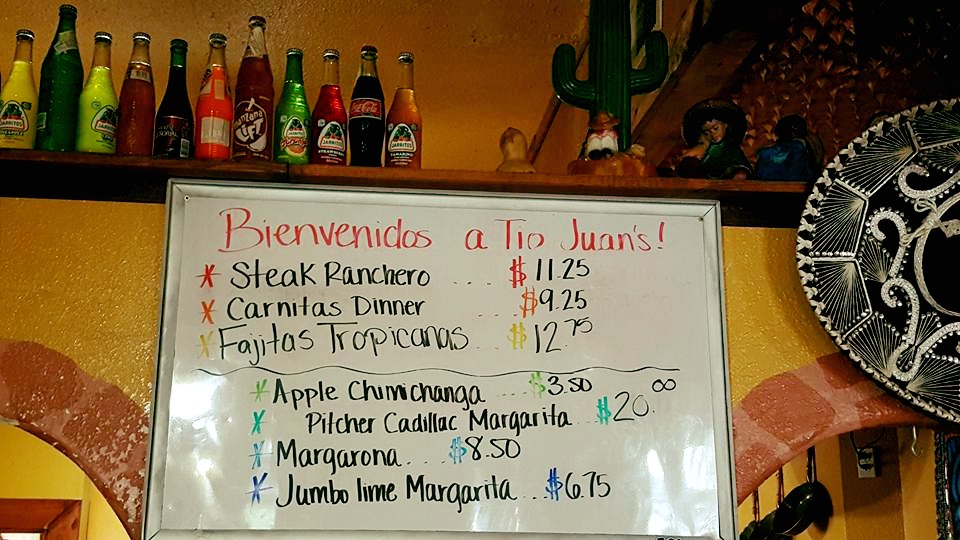 Bienvenidos a Tio Juan's!
* Steak Ranchero .... $11.25
* Carnitas Dinner .... $9.25
* Fajitas Tropicanas ... $12.75
* Apple Chimichanga .... $3.50
* Pitcher Cadillac Margarita .. $20.00
* Margarona.... $8.50
* Jumbo lime Margarita... $6.75
JARRITOS
JARRITOS
JARRITOS
JARRITOS
Coca-Cola
JARRITOS